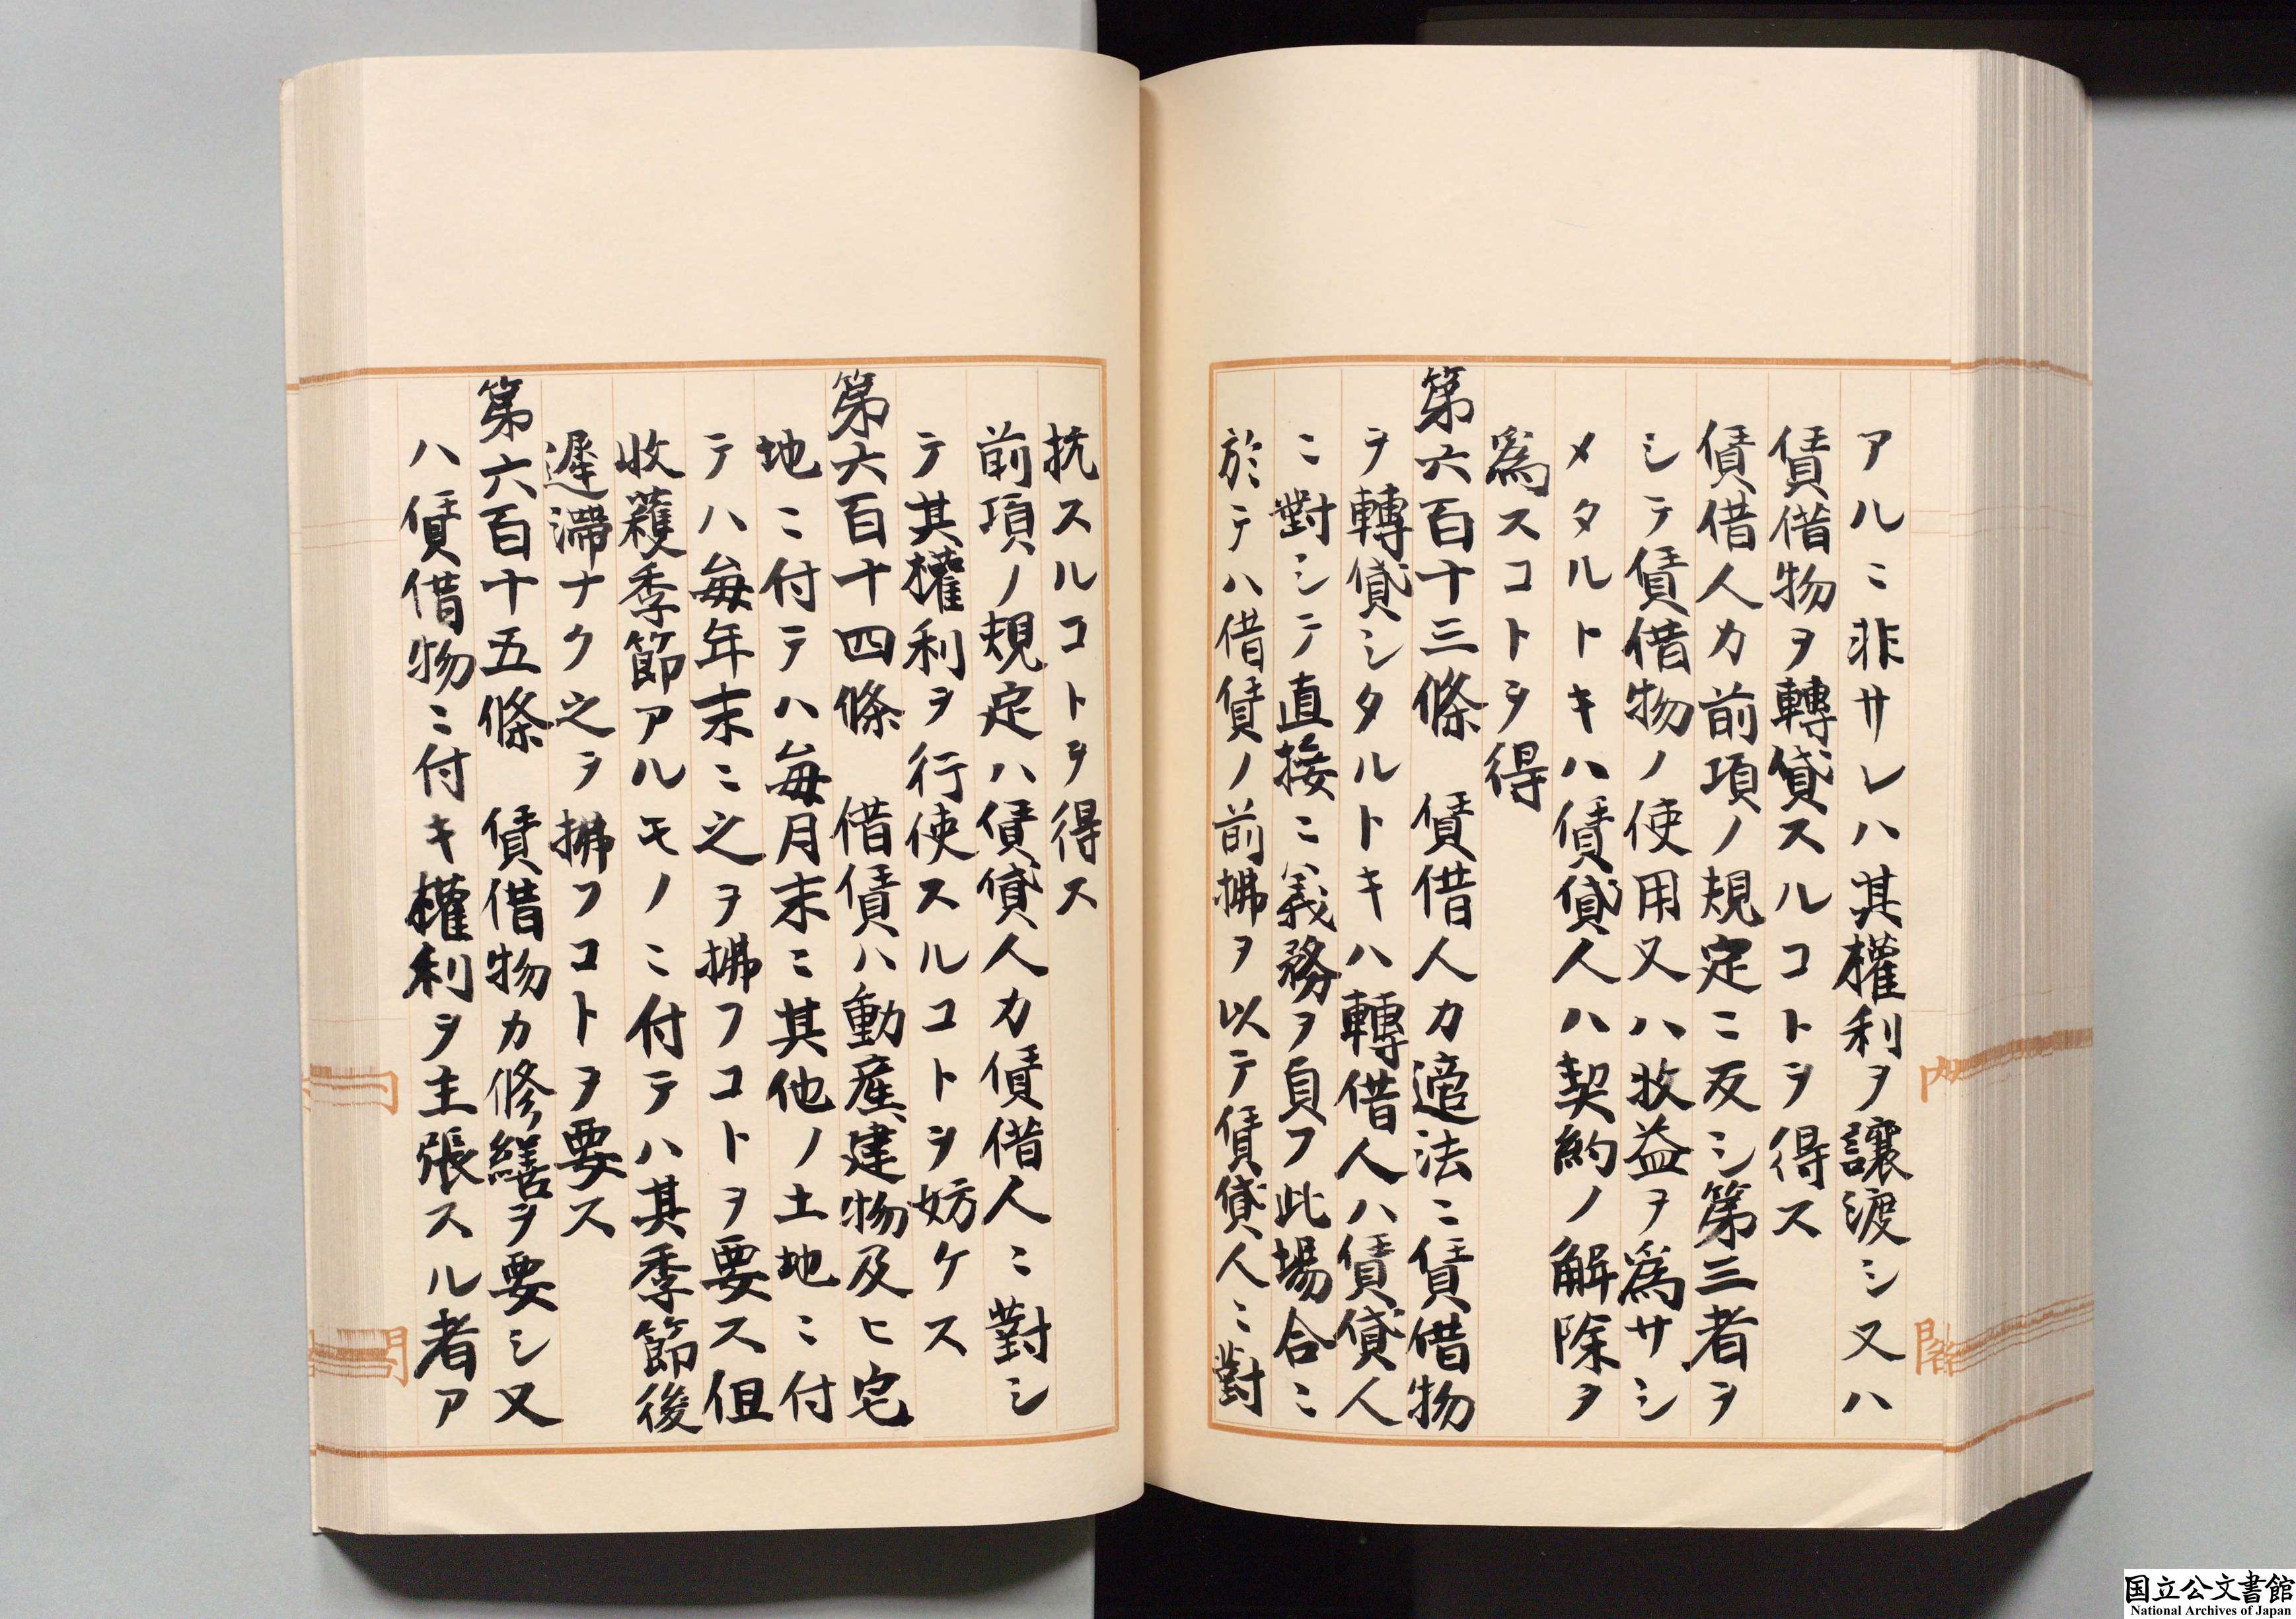 アルニ非サレハ其權利ヲ讓渡シ又ハ
賃借物ヲ轉貸スルコトヲ得ス
賃借人カ前項ノ規定ニ反シ第三者ヲ
シテ賃借物ノ使用又ハ收益ヲ爲サシ
メタルトキハ賃貸人ハ契約ノ解除ヲ
爲スコトヲ得
第六百十三條　賃借人カ適法ニ賃借物
ヲ轉貸シタルトキハ轉借人ハ賃貸人
ニ對シテ直接ニ義務ヲ負フ此場合ニ
於テハ借賃ノ前拂ヲ以テ賃貸人ニ對
内
閣
抗スルコトヲ得ス
前項ノ規定ハ賃貸人カ賃借人ニ對シ
テ其權利ヲ行使スルコトヲ妨ケス
第六百十四條　借賃ハ動產、建物及ヒ宅
地ニ付テハ毎月末ニ其他ノ土地ニ付
テハ毎年末ニ之ヲ拂フコトヲ要ス但
收穫季節アルモノニ付テハ其季節後
遲滯ナク之ヲ拂フコトヲ要ス
第六百十五條　賃借物カ修繕ヲ要シ又
ハ賃借物ニ付キ權利ヲ主張スル者ア
国立公文書館
National Archives of Japan